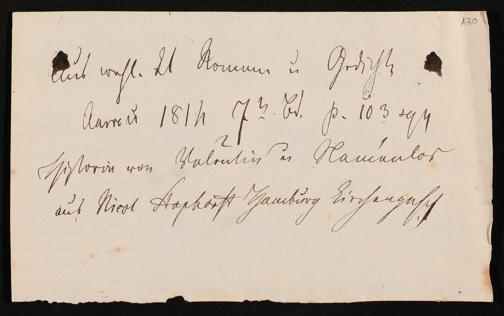 130
Aus
Romane u Gedichte
Aarau 1814 7r Bd. p. 103 sqq
Historie von Valentin u Namenlos
aus Nicol Staphorst Hamburg Kirchengesch